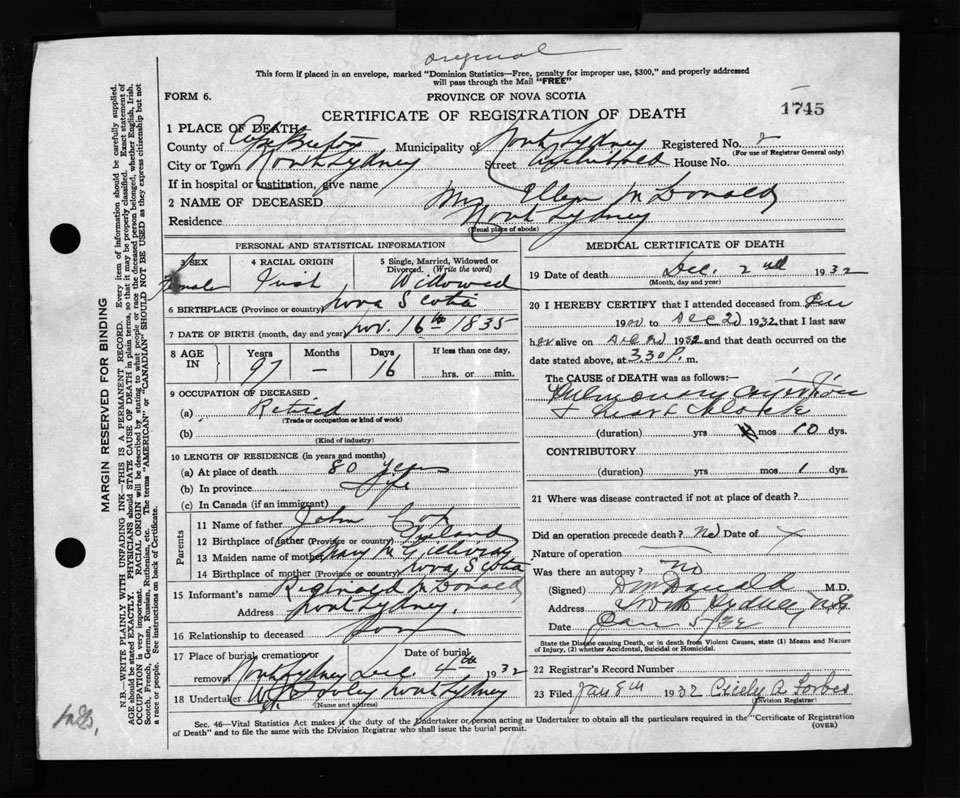 original
This form if placed in an envelope, marked "Dominion Statistics—Free, penalty for improper use, $300," and properly addressed
will pass through the Mail "FREE"
FORM 6.
PROVINCE OF NOVA SCOTIA
1745
CERTIFICATE OF REGISTRATION OF DEATH
1 PLACE OF DEATH
County of Cape Breton Municipality of North Sydney Registered No.
(For use of Registrar General only)
City or Town North Sydney Street House No.
If in hospital or institution, give name
2 NAME OF DECEASED Mrs Ellen McDonald
Residence North Sydney
(Usual place of abode)
PERSONAL AND STATISTICAL INFORMATION
3 SEX 4 RACIAL ORIGIN 5 Single, Married, Widowed or
Divorced. (Write the word)
Female Irish Widowed
6 BIRTHPLACE (Province or country) Nova Scotia
7 DATE OF BIRTH (month, day and year) Nov. 16th 1835
8 AGE IN Years Months Days If less than one day,
97 — 16 hrs. or min.
9 OCCUPATION OF DECEASED
(a) Retired
(Trade or occupation or kind of work)
(b)
(Kind of industry)
10 LENGTH OF RESIDENCE (in years and months)
(a) At place of death 80 years
(b) In province Life
(c) In Canada (if an immigrant)
Parents
11 Name of father John
12 Birthplace of father (Province or country)
13 Maiden name of mother Mary McGillivray
14 Birthplace of mother (Province or country) Nova Scotia
15 Informant's name Reginald McDonald
Address North Sydney.
16 Relationship to deceased Son
17 Place of burial, cremation or
removal Date of burial
North Sydney Dec 4th 1932
18 Undertaker North Sydney
(Name and address)
MEDICAL CERTIFICATE OF DEATH
19 Date of death Dec. 2nd 1932
(Month, day and year)
20 I HEREBY CERTIFY that I attended deceased from
19 to Dec 2 1932, that I last saw
her alive on Dec 2 1932 and that death occurred on the
date stated above, at 3.30 P. m.
The CAUSE of DEATH was as follows:—
Pulmonary
& heart
(duration) yrs mos 10 dys.
CONTRIBUTORY
(duration) yrs mos 1 dys.
21 Where was disease contracted if not at place of death?
Did an operation precede death? No Date of
Nature of operation
Was there an autopsy? No
(Signed) M.D.
Address North Sydney N.S.
Date Jan 5/32
State the Disease causing Death, or in death from Violent Causes, state (1) Means and Nature
of Injury, (2) whether Accidental, Suicidal or Homicidal.
22 Registrar's Record Number
23 Filed Jan 8th 1932 Cicely A. Forbes
(Division Registrar)
Sec. 46—Vital Statistics Act makes it the duty of the Undertaker or person acting as Undertaker to obtain all the particulars required in the "Certificate of Registration
of Death" and to file the same with the Division Registrar who shall issue the burial permit.
(OVER)
MARGIN RESERVED FOR BINDING
N.B.—WRITE PLAINLY WITH UNFADING INK—THIS IS A PERMANENT RECORD. Every item of information should be carefully supplied.
AGE should be stated EXACTLY. PHYSICIANS should STATE CAUSE OF DEATH in plain terms, so that it may be properly classified. Exact statement of
OCCUPATION is very important. RACIAL ORIGIN will be described by stating to what people or race the deceased person belonged, whether English, Irish,
Scotch, French, German, Russian, Ruthenian, etc. The terms "AMERICAN" or "CANADIAN" SHOULD NOT BE USED as they express citizenship but not
a race or people. See instructions on back of Certificate.